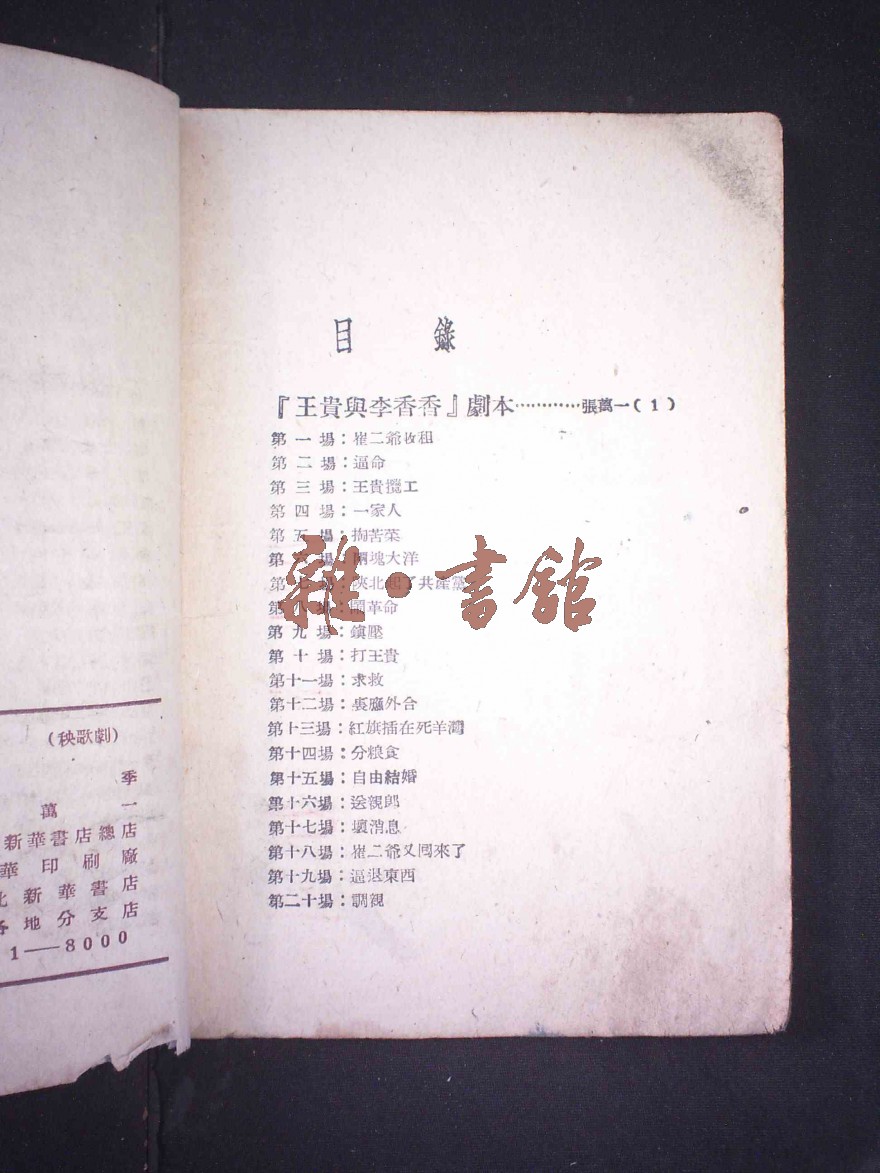 目錄
『王貴與李香香』劇本…………張萬一(1)
第一場:崔二爺收租
第二場:逼命
第三場:王貴攬工
第四場:一家人
第五場:掏苦菜
第六場:兩塊大洋
第七場:陝北起了共產黨
第八場:鬧革命
第九場:鎮壓
第十場:打王貴
第十一場:求救
第十二場:裏應外合
第十三場:紅旗插在死羊灣
第十四場:分粮食
第十五場:自由結婚
第十六場:送親郎
第十七場:壞消息
第十八場:崔二爺又回來了
第十九場:逼退東西
第二十場:調親
雜·書舘
(秧歌劇)
季
萬一
新華書店總店
華印刷廠
北新華書店
各地分支店
1—8000